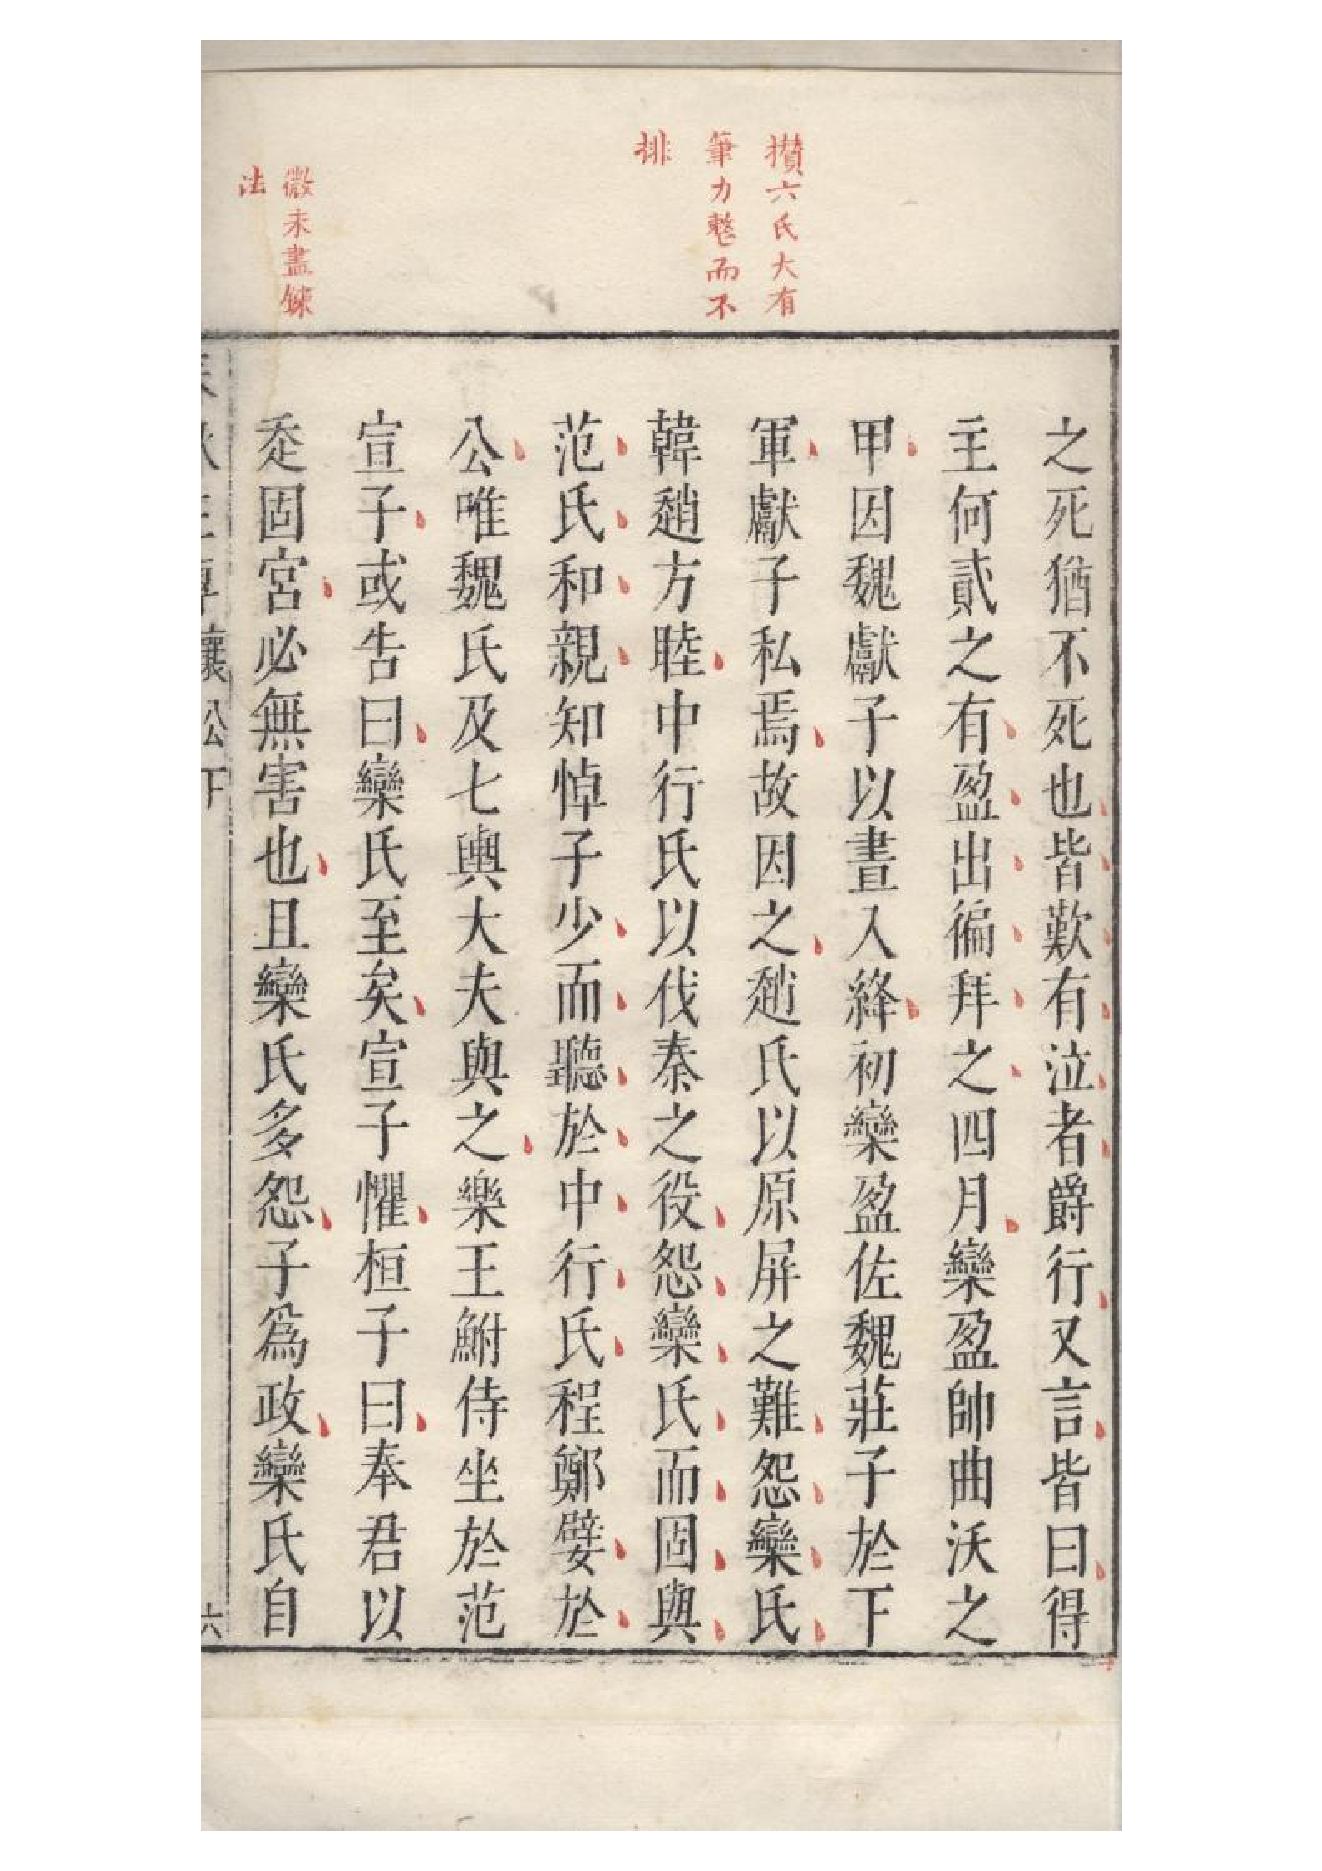 攢六氏大有
筆力整而不
排
微未盡鍊
法
之死猶不死也皆歎有泣者爵行又言皆曰得
主何貳之有盈出徧拜之四月欒盈帥曲沃之
甲因魏獻子以晝入絳初欒盈佐魏莊子於下
軍獻子私焉故因之趙氏以原屏之難怨欒氏
韓趙方睦中行氏以伐秦之役怨欒氏而固與
范氏和親知悼子少而聽於中行氏程鄭嬖於
公唯魏氏及七輿大夫與之樂王鮒侍坐於范
宣子或告曰欒氏至矣宣子懼桓子曰奉君以
走固宮必無害也且欒氏多怨子爲政欒氏自
襄公下
六